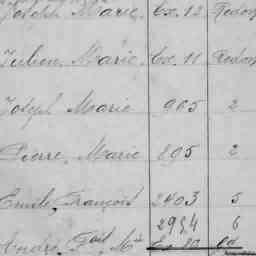 Joseph Marie. Ex. 12 Redon
Julien, Marie. Ex. 11 Redon
Joseph Marie 905 2
Pierre, Marie 895 2
Emile, François 2403 5
2954 6
André, Fois, Mie